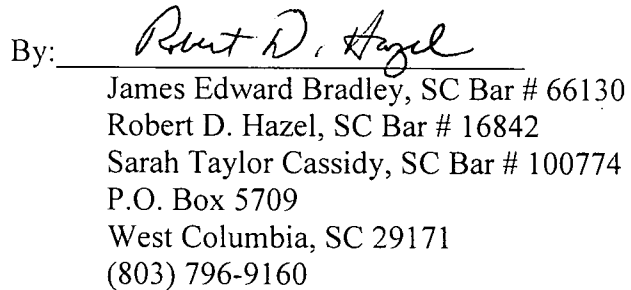 By: Robert D. Hazel
James Edward Bradley, SC Bar # 66130
Robert D. Hazel, SC Bar # 16842
Sarah Taylor Cassidy, SC Bar # 100774
P.O. Box 5709
West Columbia, SC 29171
(803) 796-9160